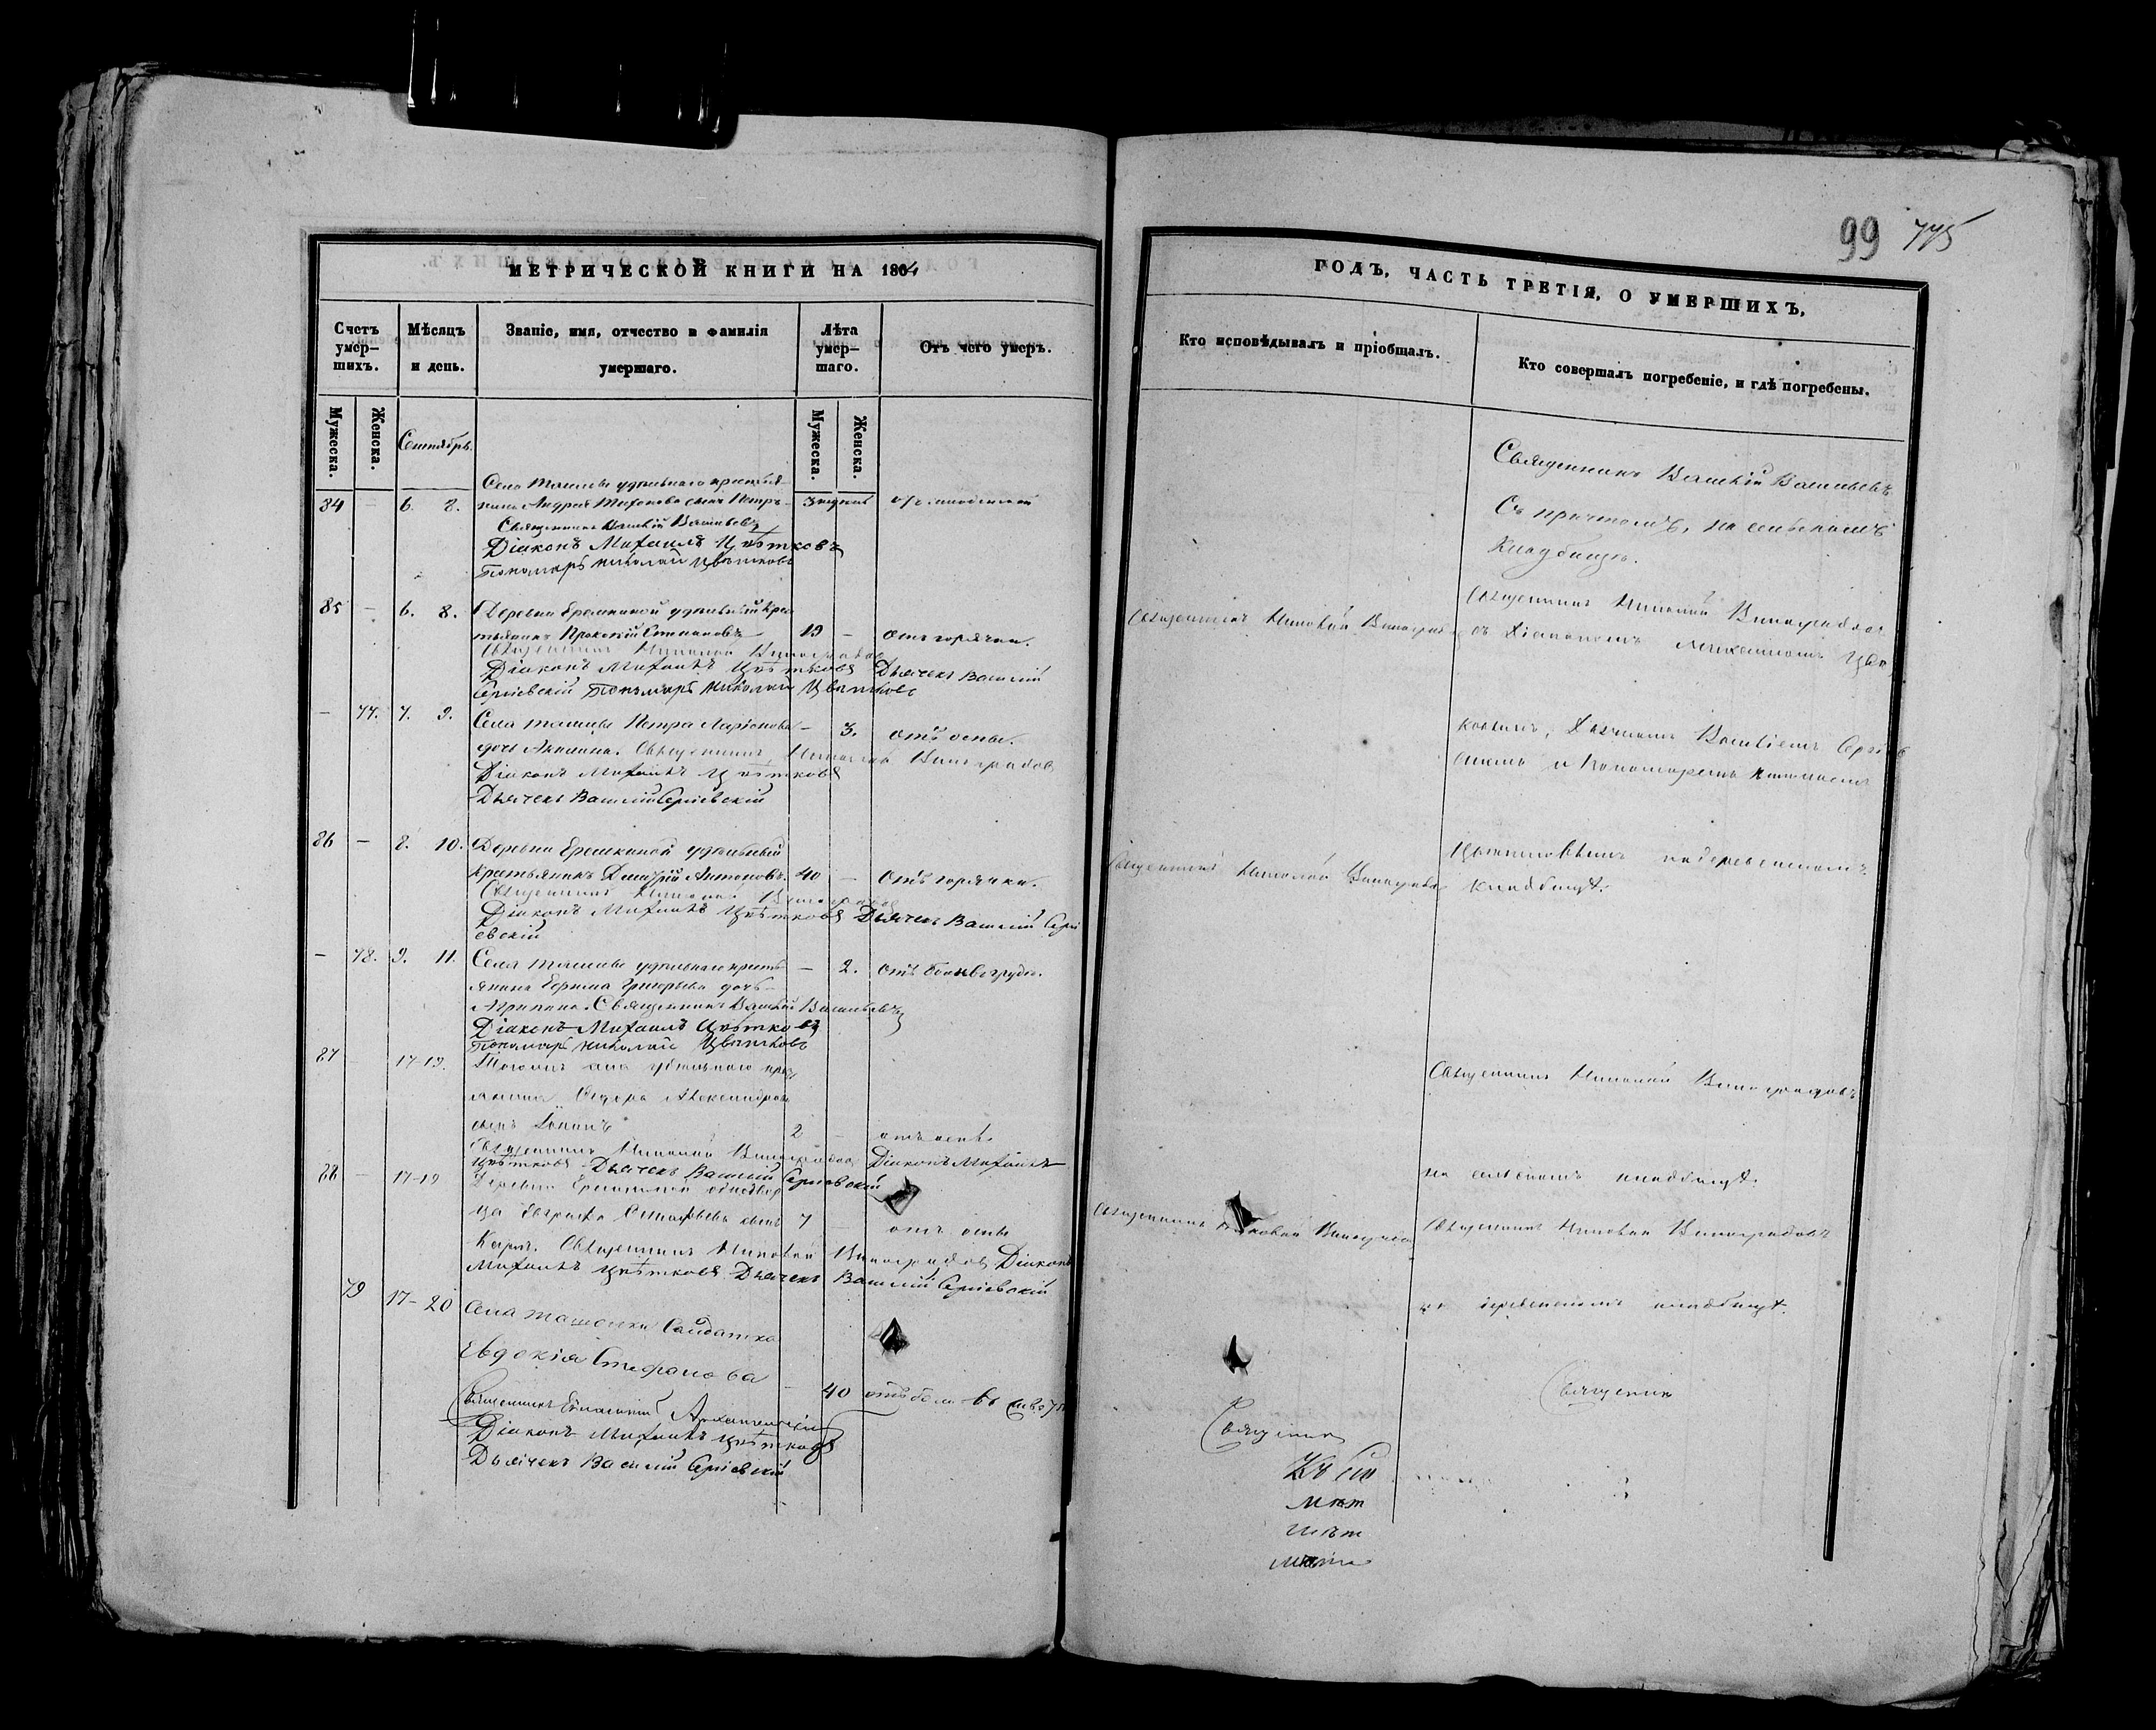 МЕТРИЧЕСКОЙ КНИГИ НА 1864
Счетъ умер-шихъ.
Мѣсяцъ и день.
Званіе, имя, отчество и фамилія умершаго.
Лѣта умер-шаго.
Отъ чего умеръ.
Мужеска.
Женска.
Сентябрь.
Мужеска.
Женска.
Села удѣльнаго крестья-
84 — 6. 8. нина Андрея сынъ Петръ
Священникъ Василій Васильевъ
Діаконъ Михаилъ Цвѣтковъ
Пономарь Николай Цвѣтковъ
85 — 6. 8. Деревни Еремкиной удѣльный крес
тьянинъ Степановъ 19 — отъ горячки.
Священникъ Николай Виноградовъ
Діаконъ Михаилъ Цвѣтковъ Дьячекъ Василій
Сергіевскій Пономарь Николай Цвѣтковъ
— 77. 7. 9. Села Петра Ларіонова — 3. отъ оспы.
дочь Акилина. Священникъ Николай Виноградовъ
Діаконъ Михаилъ Цвѣтковъ
Дьячекъ Василій Сергіевскій
86 — 8. 10. Деревни Еремкиной удѣльный
крестьянинъ Дмитрій Антоновъ. 40 — отъ горячки.
Священникъ Николай Виноградовъ
Діаконъ Михаилъ Цвѣтковъ Дьячекъ Василій Сергі
евскій
— 78. 9. 11. Села удѣльнаго кресть — 2. отъ боли въ груди.
янина Григорьева дочь
Агрипина. Священникъ Василій Васильевъ
Діаконъ Михаилъ Цвѣтковъ
Пономарь Николай Цвѣтковъ
87 — 17-19. Тогожъ села удѣльнаго крес
янина Александрова
сынъ 2 — отъ оспы.
Священникъ Николай Виноградовъ Діаконъ Михаилъ
Цвѣтковъ Дьячекъ Василій Сергіевскій
88 — 17-19 Деревни Еремкиной однодвор
ца сынъ 7 — отъ оспы
Священникъ Николай Виноградовъ Діаконъ
Михаилъ Цвѣтковъ Дьячекъ Василій Сергіевскій
79 17-20 Села Солдатка
Евдокія Стефанова
— 40 отъ
Священникъ
Діаконъ Михаилъ Цвѣтковъ
Дьячекъ Василій Сергіевскій
99 775
ГОДЪ, ЧАСТЬ ТРЕТІЯ, О УМЕРШИХЪ,
Кто исповѣдывалъ и пріобщалъ.
Кто совершалъ погребеніе, и гдѣ погребены.
Священникъ Василій Васильевъ
Съ причтомъ, на сельскомъ
Кладбищѣ.
Священникъ Николай Виноградовъ
Священникъ Николай Виноградовъ
съ Діакономъ Михаиломъ Цвѣт
ковымъ, Дьячкомъ Василіемъ Сергіев
скимъ и Пономаремъ Николаемъ
Цвѣтковымъ на деревенскомъ
кладбищѣ.
Священникъ Николай Виноградовъ
Священникъ Николай Виноградовъ
на сельскомъ кладбищѣ.
Священникъ Николай Виноградовъ
Священникъ Николай Виноградовъ
на деревенскомъ кладбищѣ.
Священник
Священник